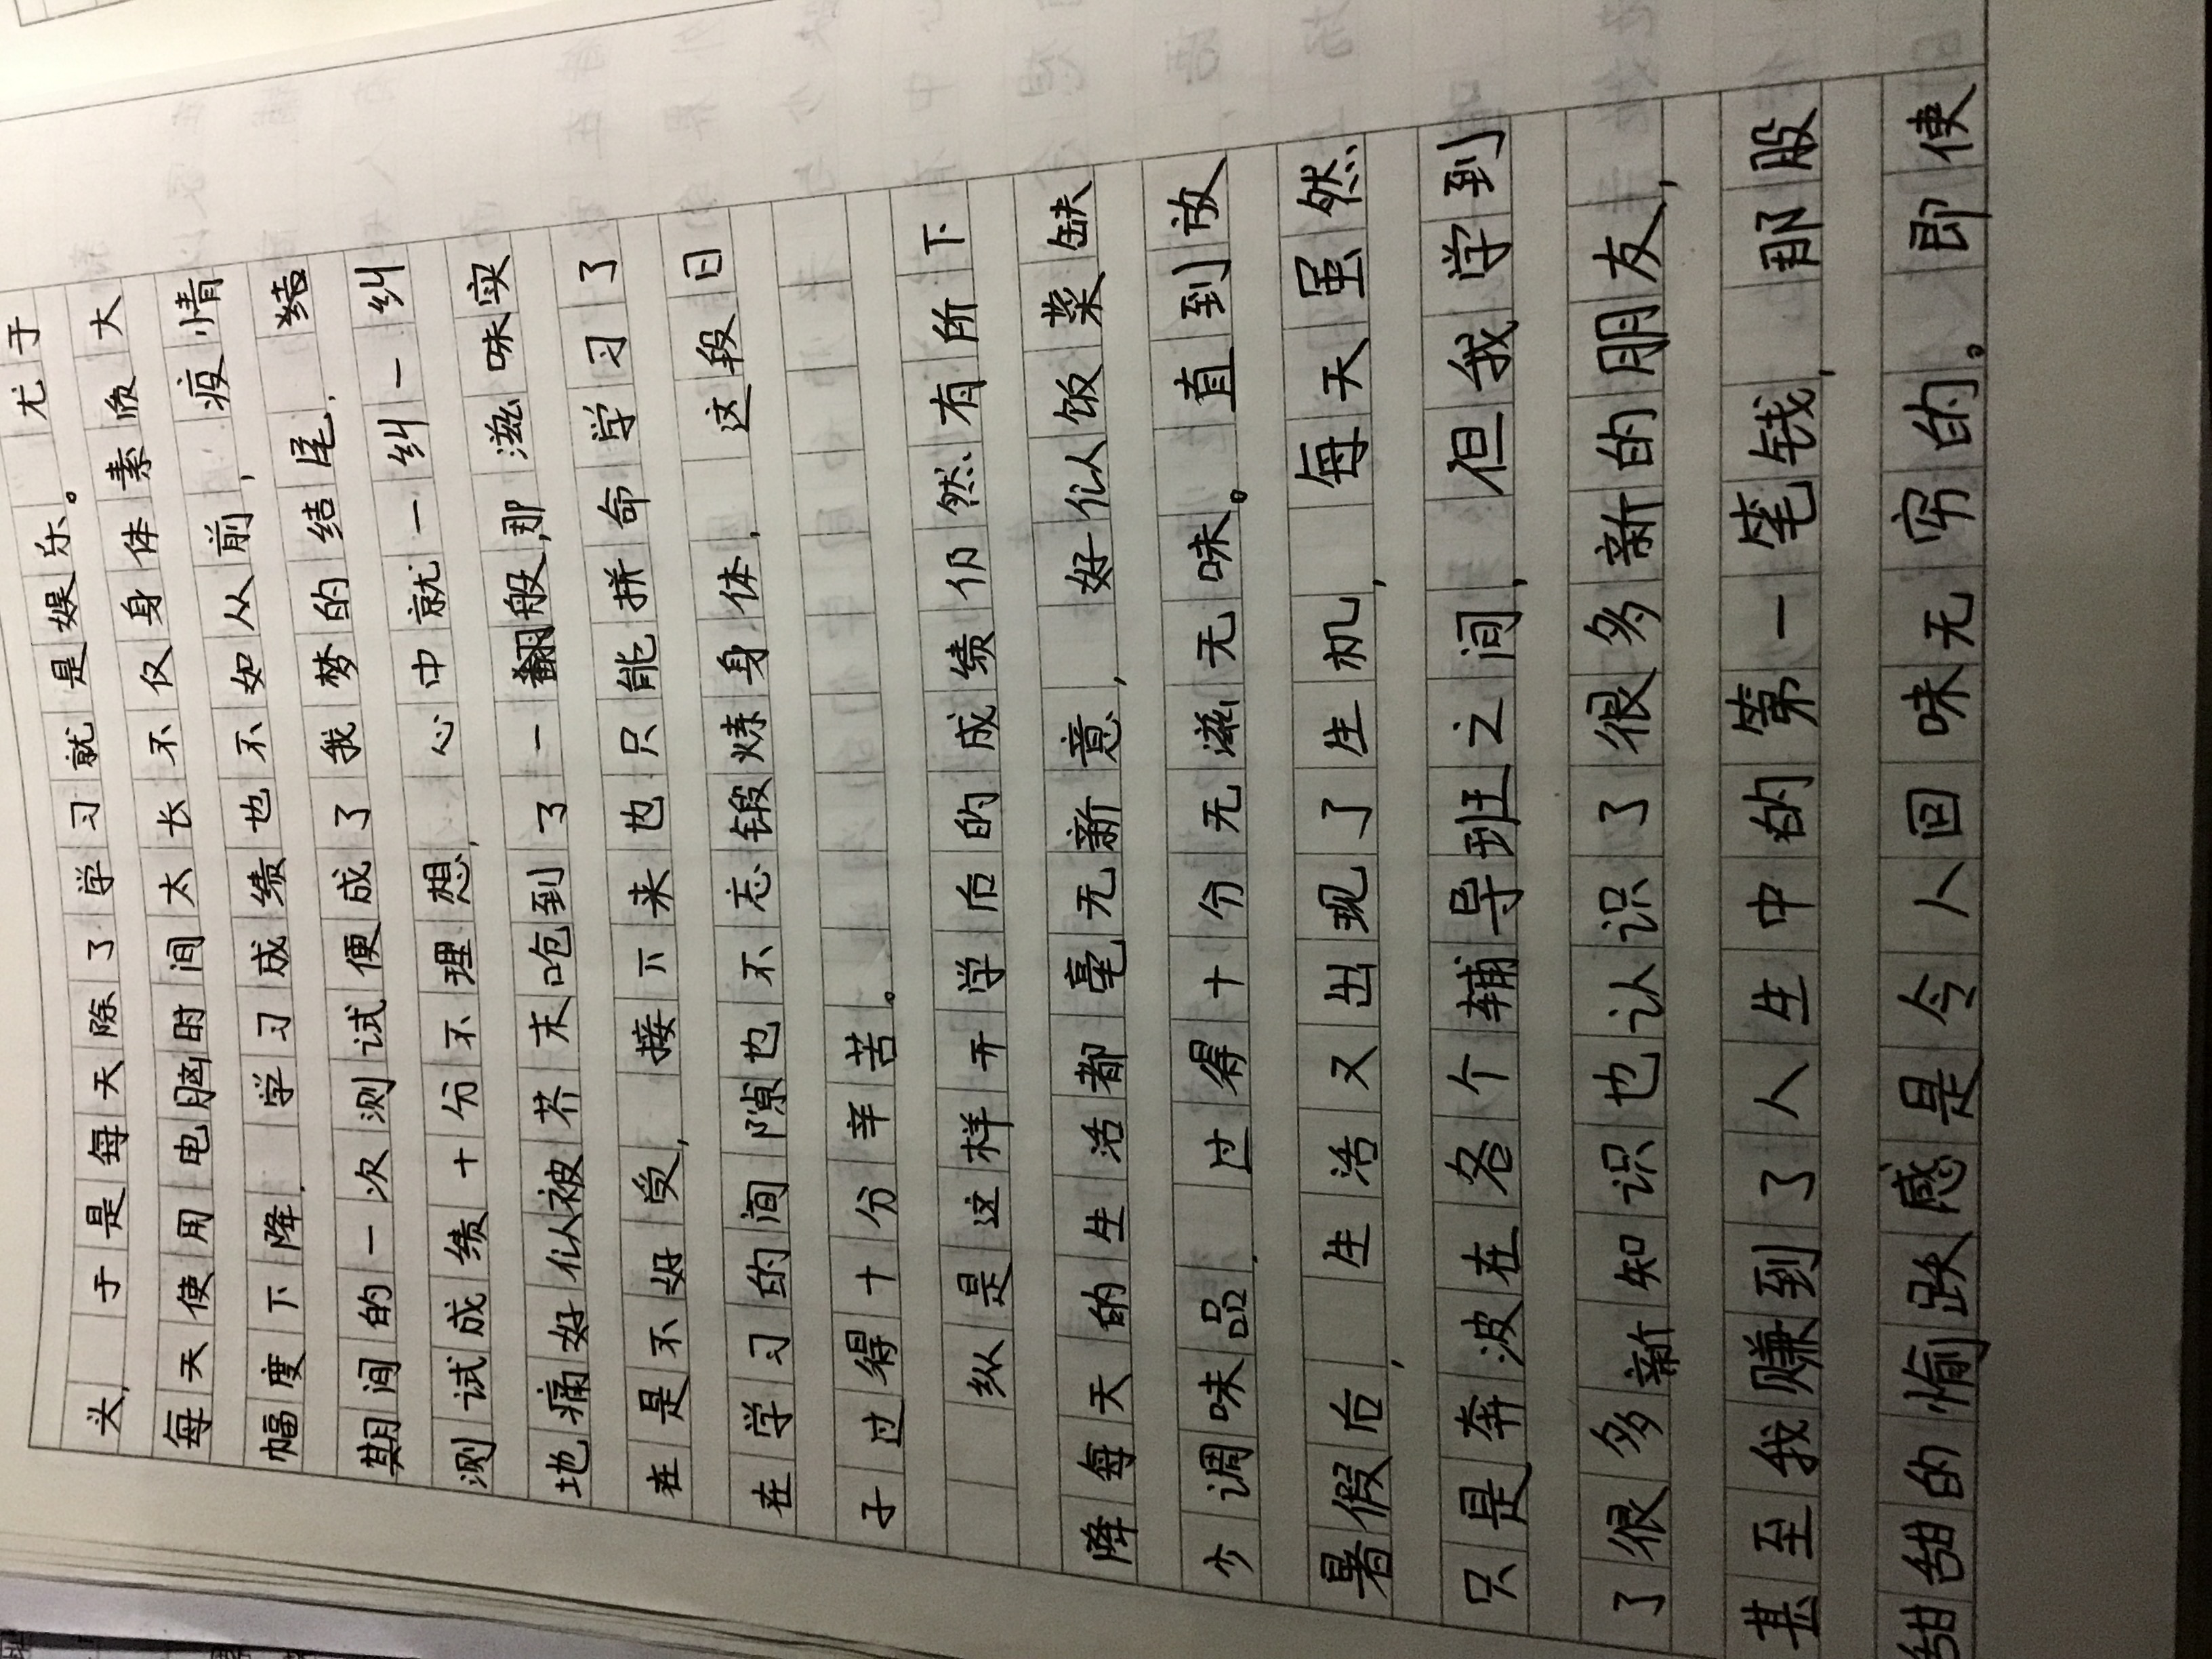 尤于
头，于是每天除了学习就是娱乐。
每天使用电脑时间太长不仅身体素质大
幅度下降，学习成绩也不如从前，疫情
期间的一次测试便成了我梦的结尾，结
测试成绩十分不理想，心中就一纠一纠
地痛好似被芥末呛到了一翻般，那滋味实
在是不好受，接下来也只能拼命学习了
在学习的间隙也不忘锻炼身体，这段日
子过得十分辛苦。
纵是这样开学后的成绩仍然有所下
降每天的生活都毫无新意，好似饭菜缺
少调味品，过得十分无滋无味。直到放
暑假后，生活又出现了生机，每天虽然
只是奔波在各个辅导班之间，但我学到
了很多新知识也认识了很多新的朋友，
甚至我赚到了人生中的第一笔钱，那股
甜甜的愉跃感是令人回味无穷的。即使